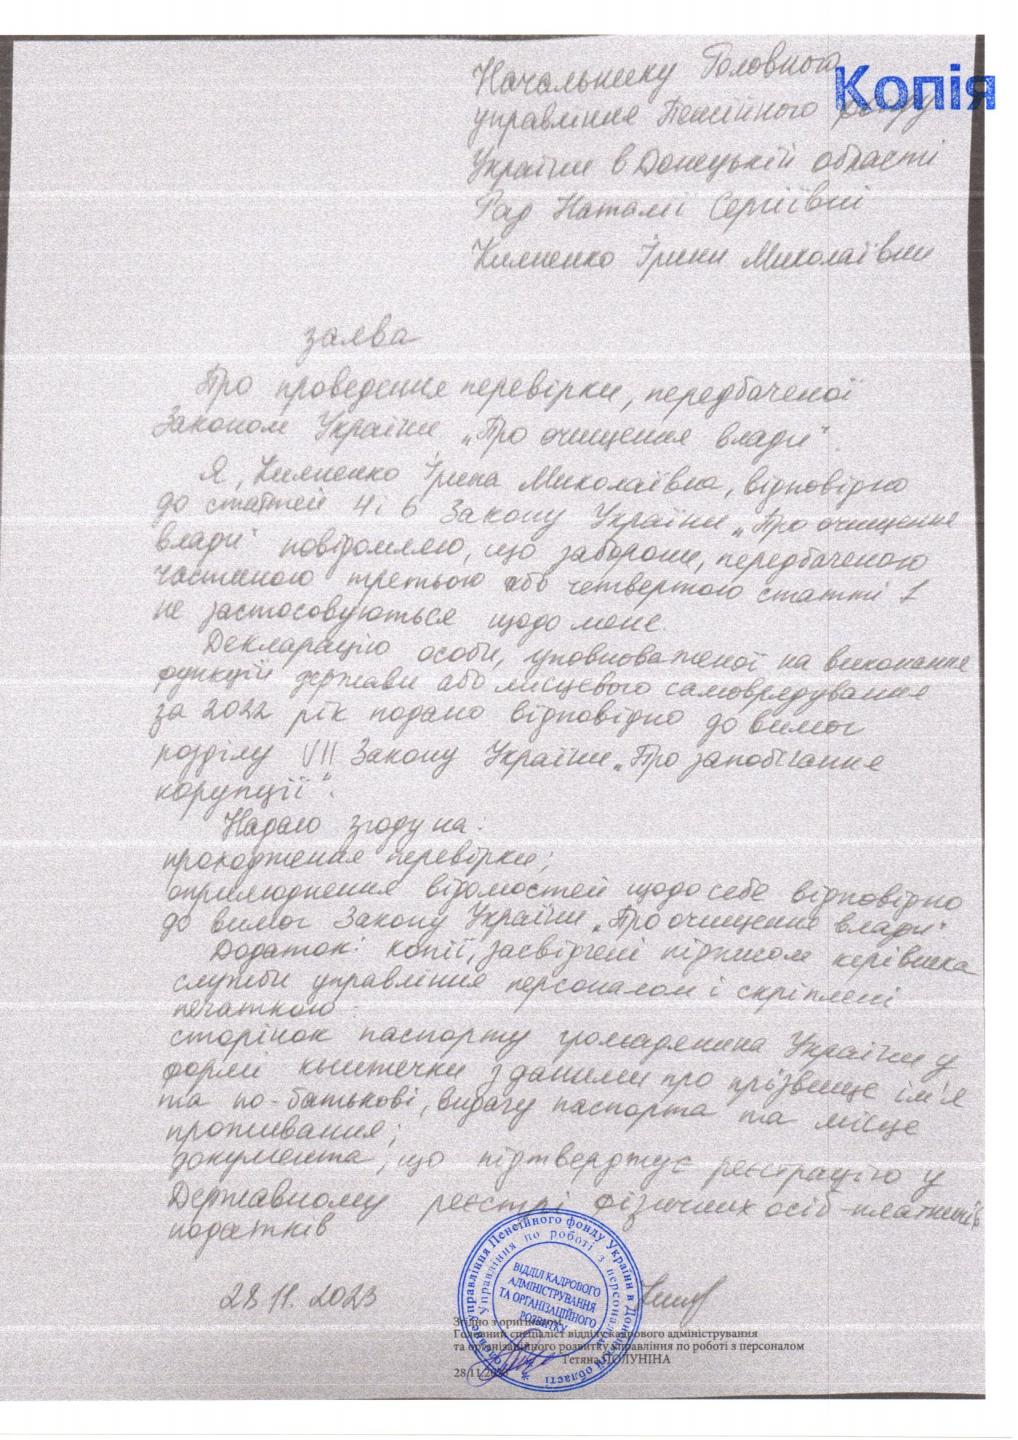 Копія
Начальнику Головного
управління Пенсійного фонду
України в Донецькій області
Рад Наталії Сергіївні
Ірини Миколаївни
заява
Про проведення перевірки, передбаченої
Законом України „Про очищення влади".
Я, Ірина Миколаївна, відповідно
до статтей 4 і 6 Закону України „Про очищення
влади" повідомляю, що заборони, передбаченою
частиною третьою або четвертою статті 1
не застосовуються щодо мене.
Декларацію особи, уповноваженої на виконання
функцій держави або місцевого самоврядування
за 2022 рік подано відповідно до вимог
розділу VII Закону України „Про запобігання
корупції".
Надаю згоду на:
проходження перевірки;
оприлюднення відомостей щодо себе відповідно
до вимог Закону України „Про очищення влади"
Додаток: копії, засвідчені підписом керівника
служби управління персоналом і скріплені
печаткою:
сторінок паспорту громадянина України у
формі книжечки з даними про прізвище ім'я
та по-батькові, видачу паспорта та місце
проживання;
документа, що підтверджує реєстрацію у
Державному реєстрі фізичних осіб-платників
податків
28.11.2023
Головне управління Пенсійного фонду України в Донецькій області
Управління по роботі з персоналом
ВІДДІЛ КАДРОВОГО
АДМІНІСТРУВАННЯ
ТА ОРГАНІЗАЦІЙНОГО
РОЗВИТКУ
Згідно з оригіналом
Головний спеціаліст відділу кадрового адміністрування
та організаційного розвитку управління по роботі з персоналом
Тетяна ПОЛУНІНА
28.11.2023